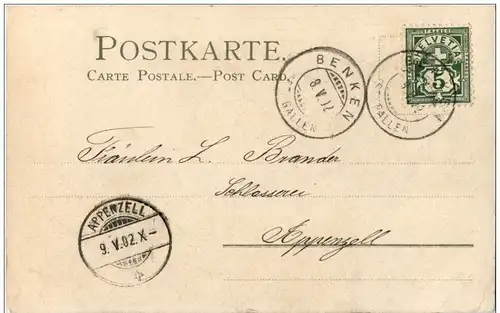 POSTKARTE.
CARTE POSTALE.—POST CARD.
BENKEN
8.V.02
ST. GALLEN
HELVETIA
FRANCO
5
GALLEN
Fräulein L. Brander
Schlosserei
Appenzell
APPENZELL
9.V.02.X–